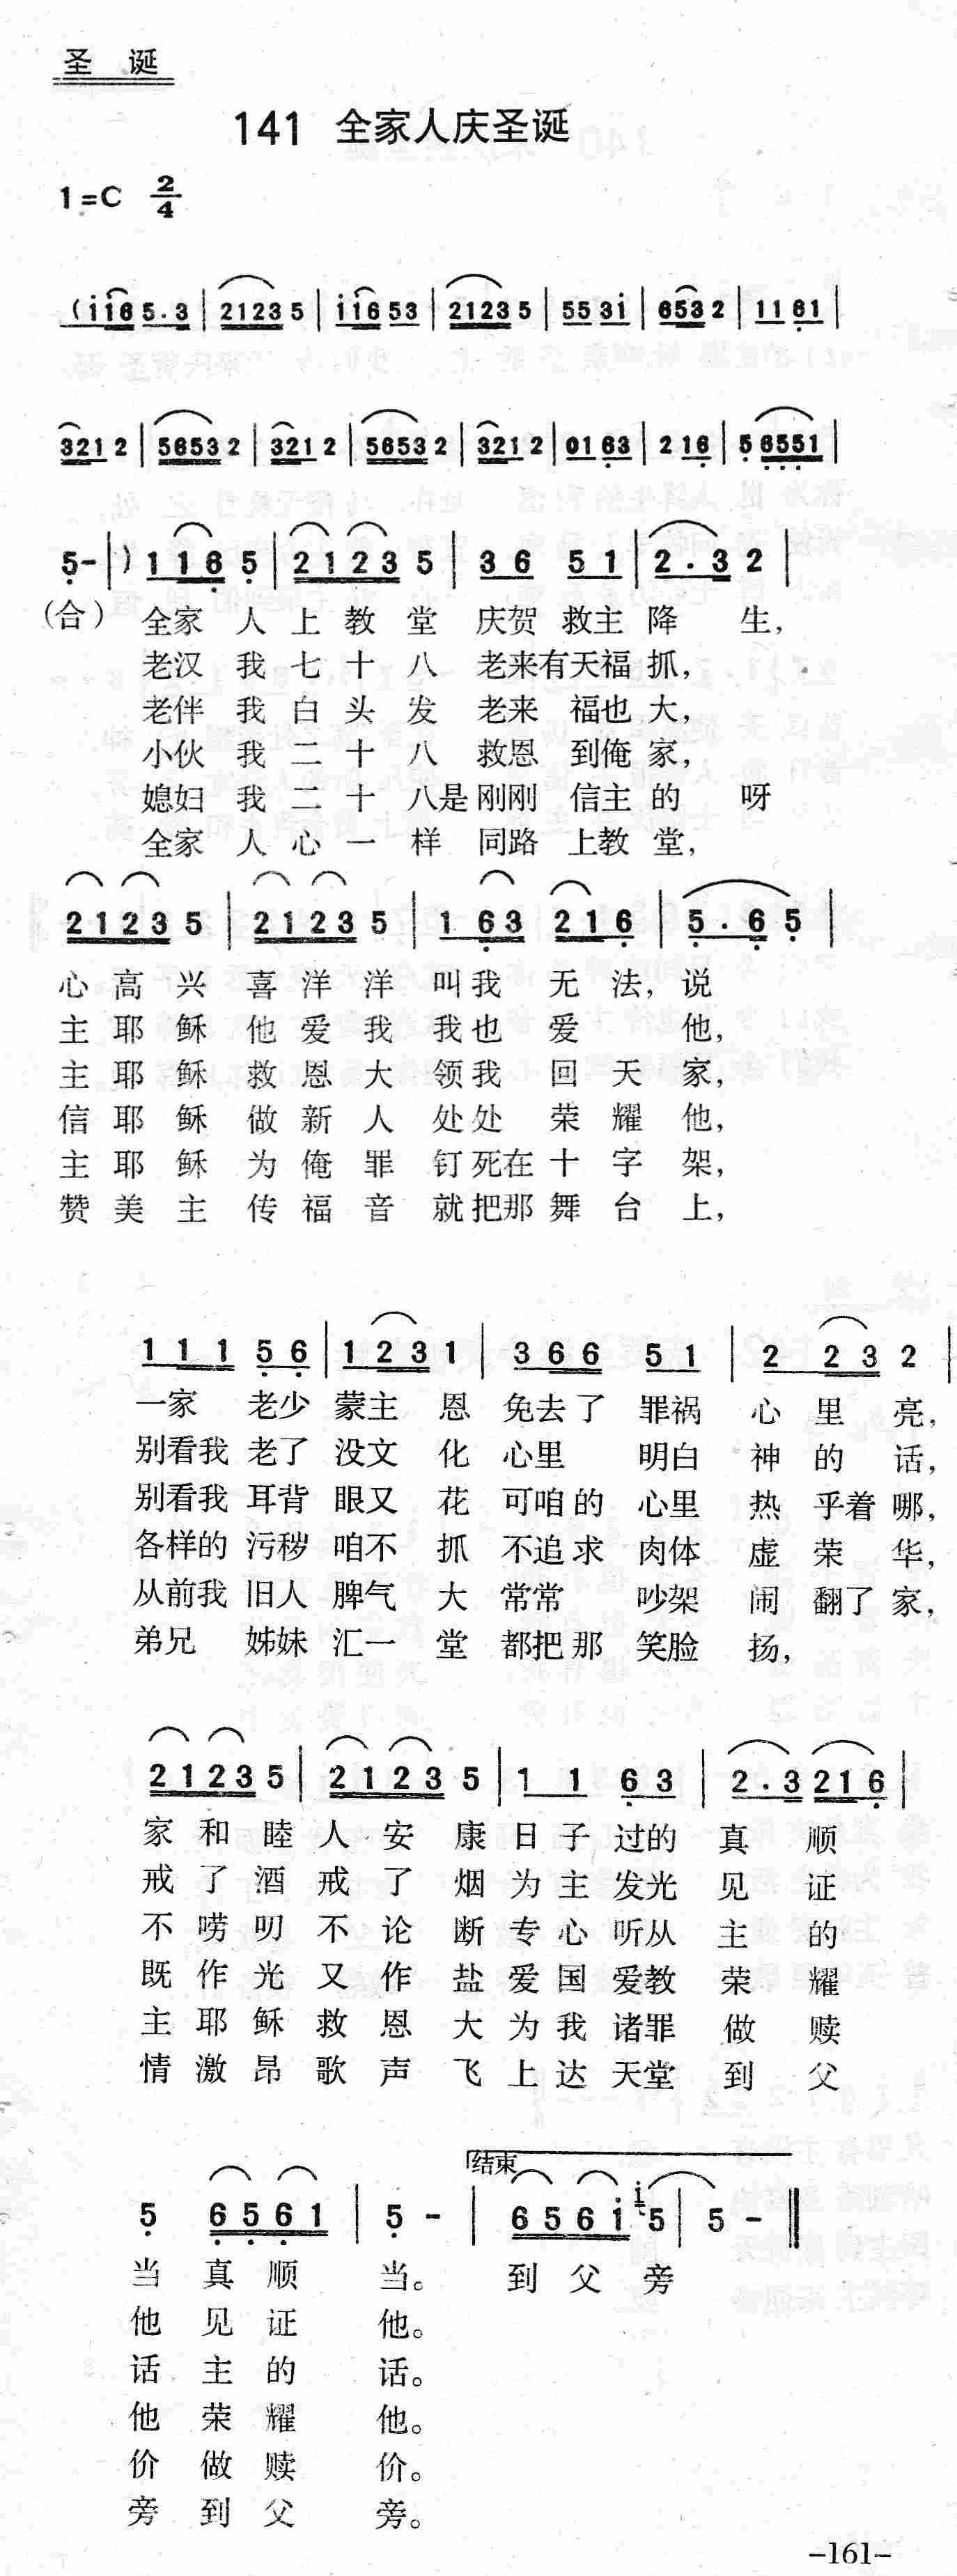 圣 诞
141 全家人庆圣诞
1=C 2/4
(i i 6 5.3 | 2123 5 | i i 6 53 | 2123 5 | 55 3i | 653 2 | 11 61 |
321 2 | 5653 2 | 321 2 | 5653 2 | 321 2 | 01 63 | 2 16 | 5 6551 |
5- | ) 1 16 5 | 2123 5 | 36 51 | 2.3 2 |
(合) 全家 人 上 教 堂 庆贺 救主 降 生,
老汉 我 七 十 八 老来有天福 抓,
老伴 我 白 头 发 老来 福也 大,
小伙 我 二 十 八 救恩 到俺 家,
媳妇 我 二 十 八是 刚刚 信主 的 呀
全家 人 心 一 样 同路 上教 堂,
2123 5 | 2123 5 | 1 63 216 | 5.6 5 |
心 高 兴 喜 洋 洋 叫我 无 法, 说
主 耶 稣 他 爱 我 我也 爱 他,
主 耶 稣 救 恩 大 领我 回 天 家,
信 耶 稣 做 新 人 处处 荣 耀 他,
主 耶 稣 为 俺 罪 钉死在 十 字 架,
赞 美 主 传 福 音 就把那 舞 台 上,
1 11 56 | 1 23 1 | 3 66 51 | 2 23 2 |
一家 老少 蒙主 恩 免去了 罪祸 心 里 亮,
别看我 老了 没文 化 心里 明白 神 的 话,
别看我 耳背 眼又 花 可咱的 心里 热 乎着 哪,
各样的 污秽 咱不 抓 不追求 肉体 虚 荣 华,
从前我 旧人 脾气 大 常常 吵架 闹 翻了 家,
弟兄 姊妹 汇一 堂 都把那 笑脸 扬,
2123 5 | 2123 5 | 1 1 63 | 2.3 216 |
家 和 睦 人 安 康 日 子 过的 真 顺
戒 了 酒 戒 了 烟 为 主 发光 见 证
不 唠 叨 不 论 断 专 心 听从 主 的
既 作 光 又 作 盐 爱 国 爱教 荣 耀
主 耶 稣 救 恩 大 为 我 诸罪 做 赎
情 激 昂 歌 声 飞 上 达 天堂 到 父
结束
5 6561 | 5 - | 656i i5 | 5 - ‖
当 真 顺 当。 到 父 旁
他 见 证 他。
话 主 的 话。
他 荣 耀 他。
价 做 赎 价。
旁 到 父 旁。
-161-